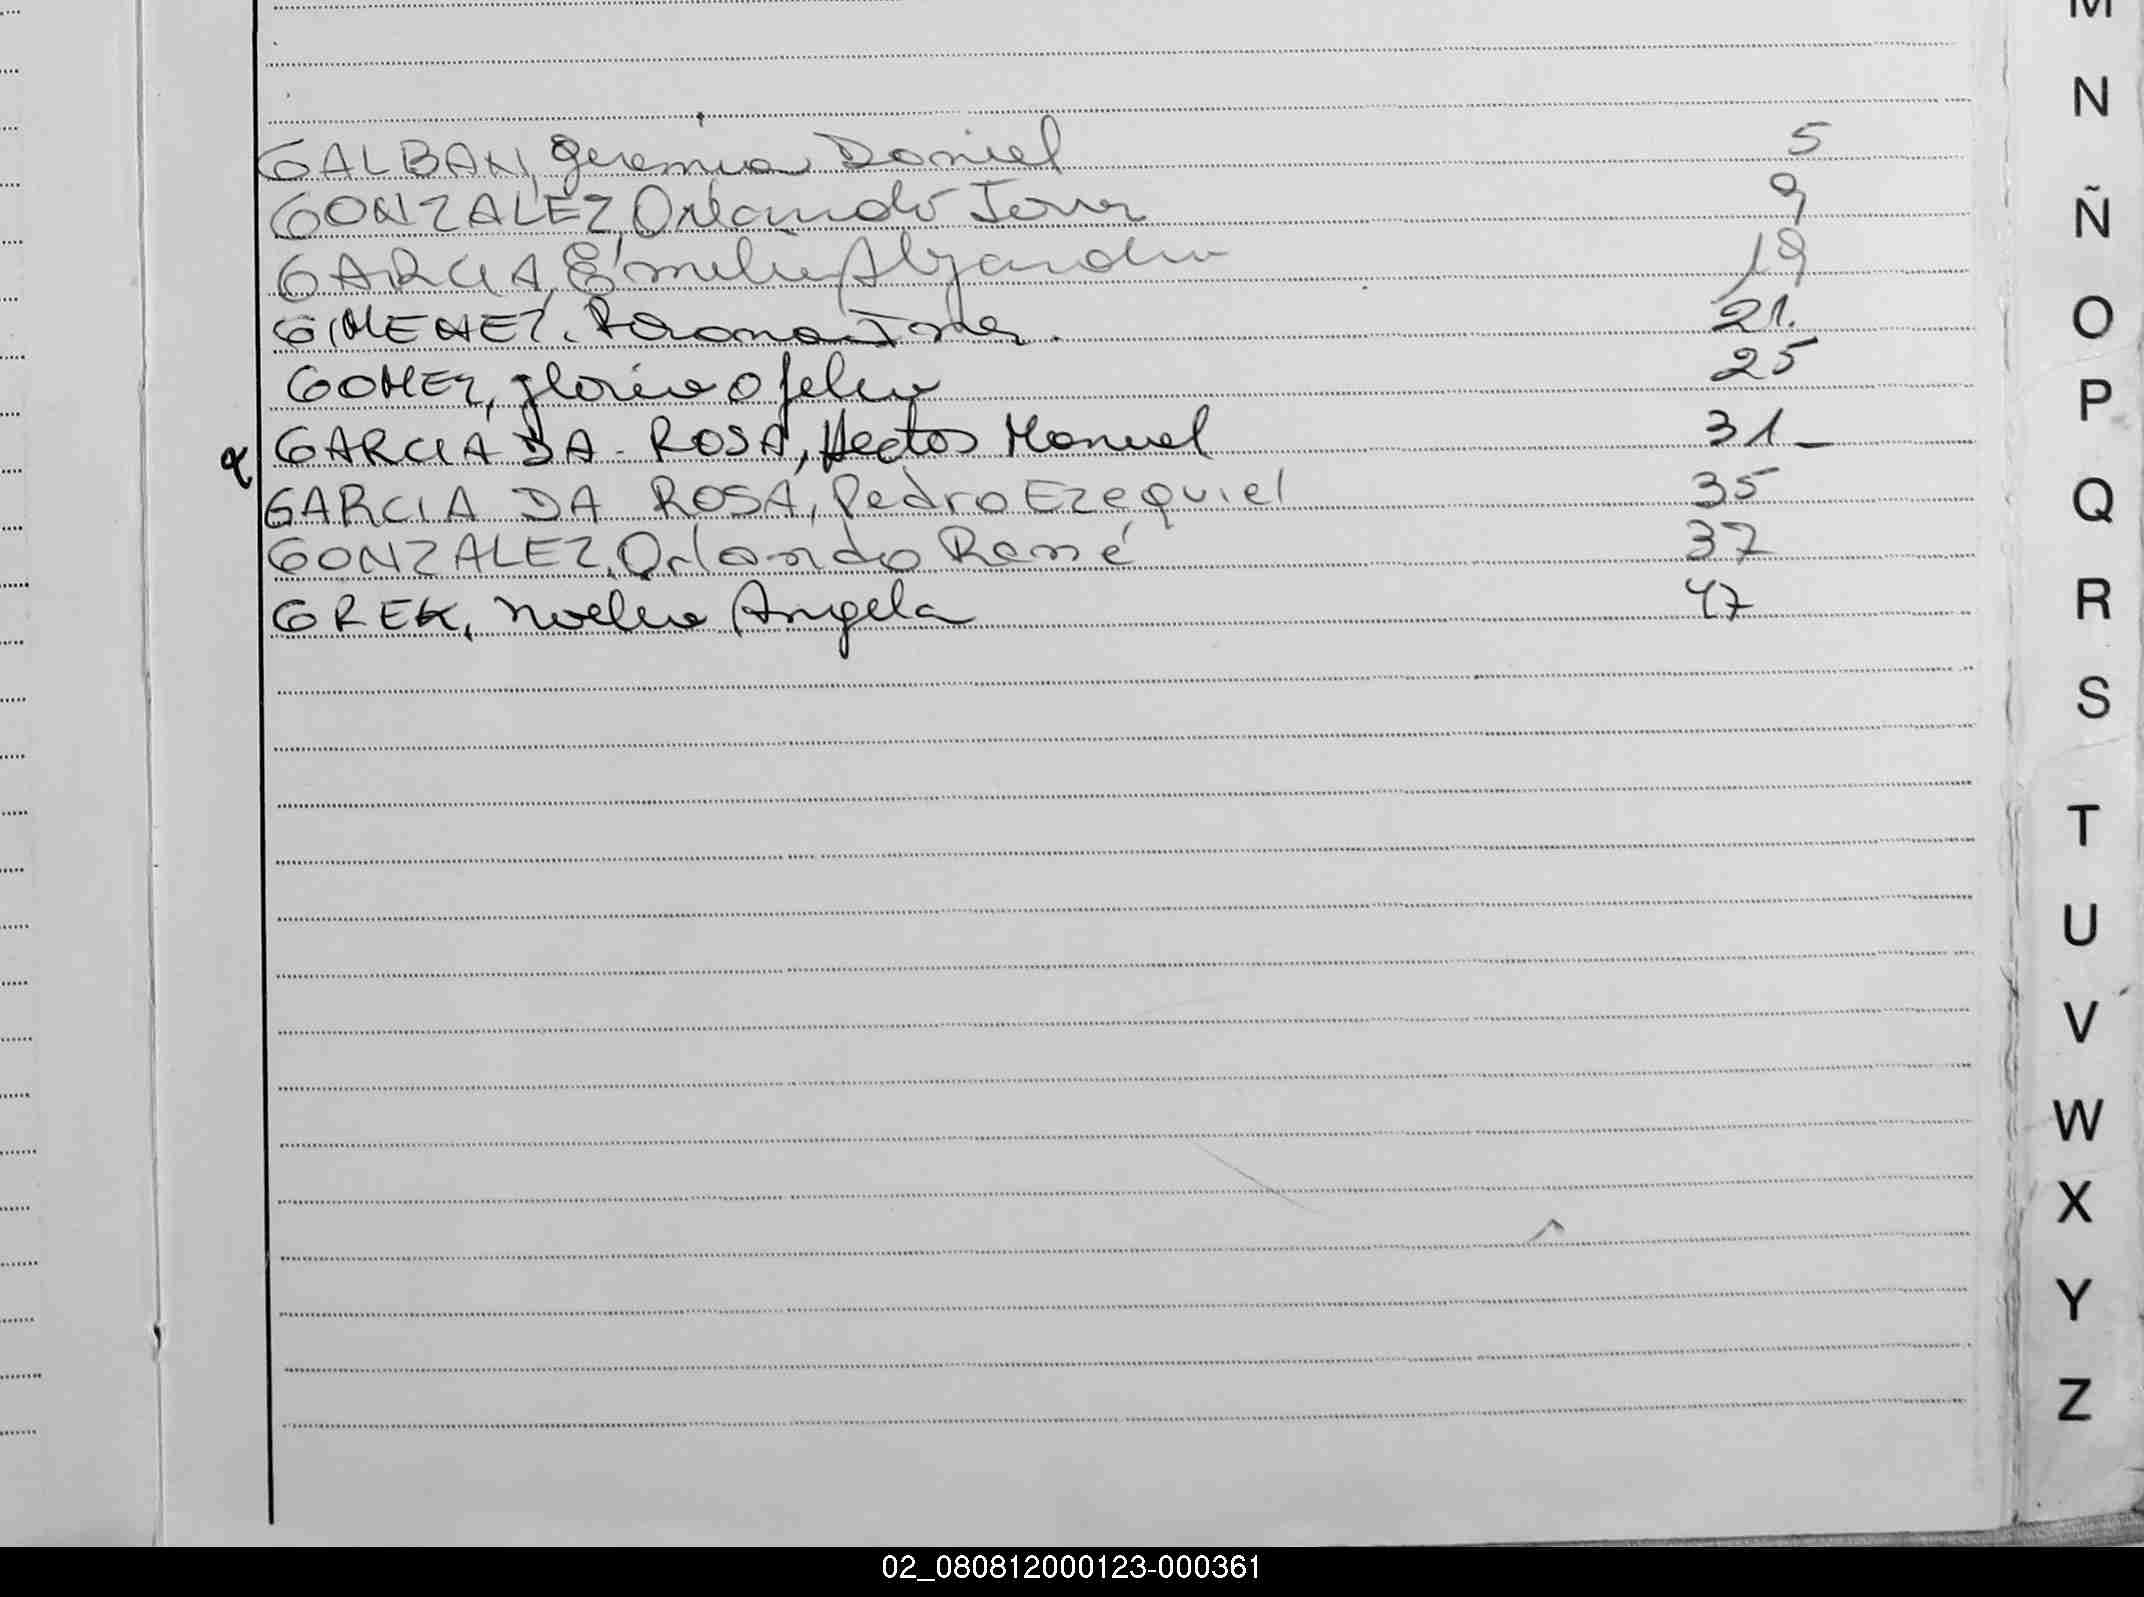 GALBAN, Geremia Daniel 5
GONZALEZ, Orlando 9
GARCIA, Emilio Alejandro 19
GIMENEZ, Ramona 21.
GOMEZ, Gloria Ofelia 25
GARCIA DA-ROSA, Hector Manuel 31-
GARCIA DA ROSA, Pedro Ezequiel 35
GONZALEZ, Orlando René 37
GREK, Noelia Angela 47
N
Ñ
O
P
Q
R
S
T
U
V
W
X
Y
Z
02_080812000123-000361